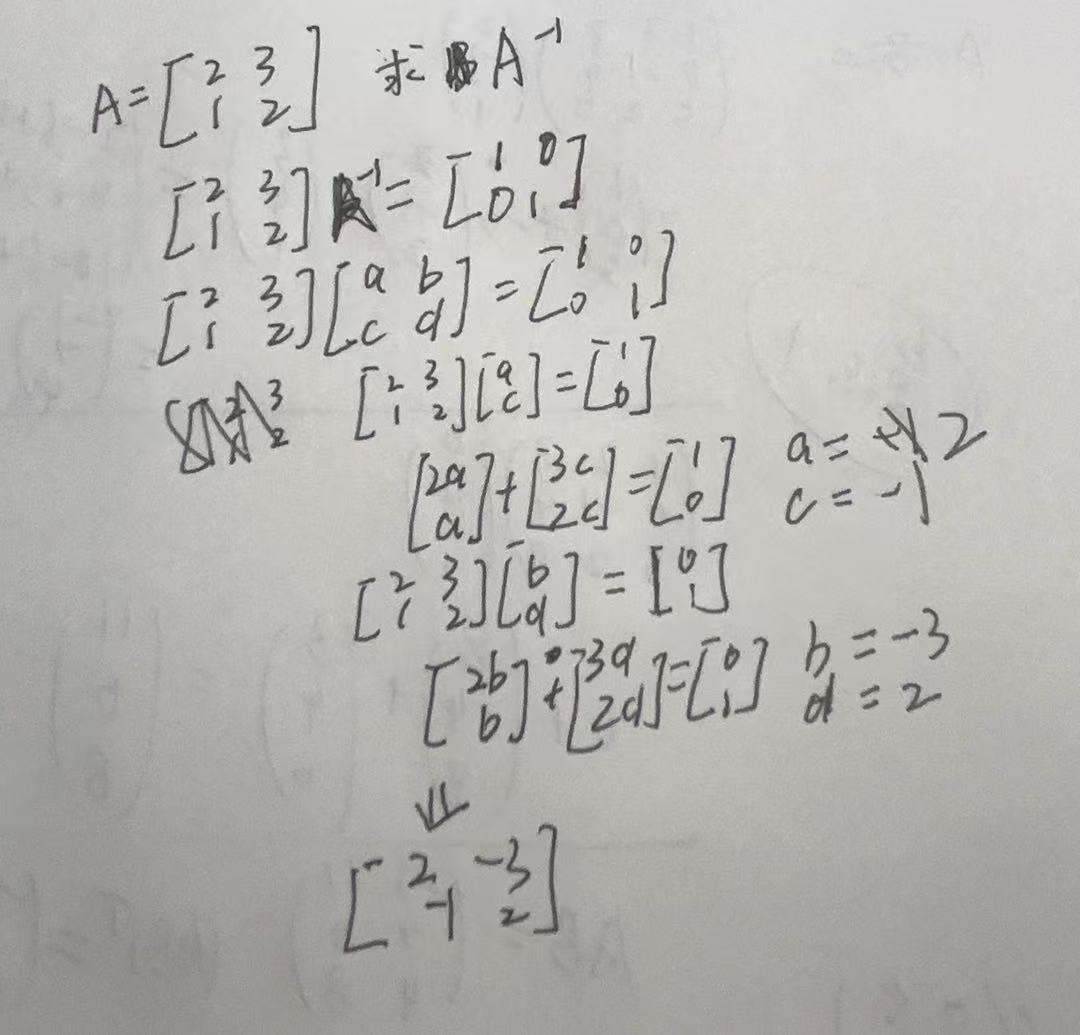 A = [2 3; 1 2] 求 A⁻¹
[2 3; 1 2] A⁻¹ = [1 0; 0 1]
[2 3; 1 2] [a b; c d] = [1 0; 0 1]
3 2 [2 3; 1 2] [a; c] = [1; 0]
[2a; a] + [3c; 2c] = [1; 0] a = 2 c = -1
[2 3; 1 2] [b; d] = [0; 1]
[2b; b] + [3d; 2d] = [0; 1] b = -3 d = 2
⇓
[2 -3; -1 2]